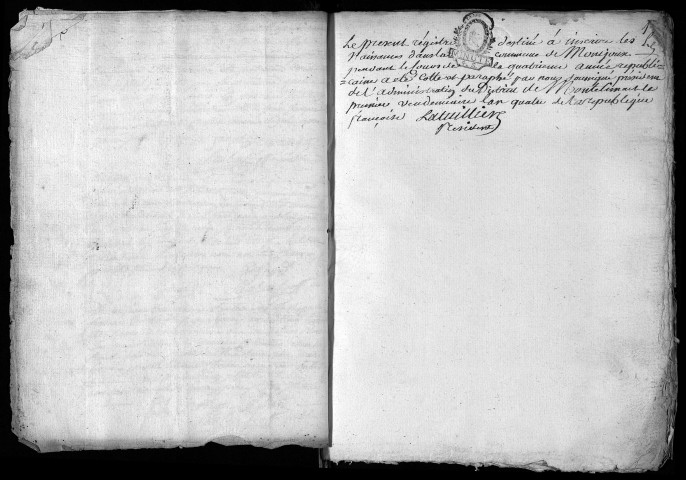 Le present régistre destiné à inscrire les
Naissances dans la commune de Montjoux
pendant le cours de la quatrieme année republi
=caine a eté Cotté et paraphé par nous soussigné président
de l'administration du District de Montelimart le
premier vendemiaire l'an quatre de la republique
françoise Lavillier
President